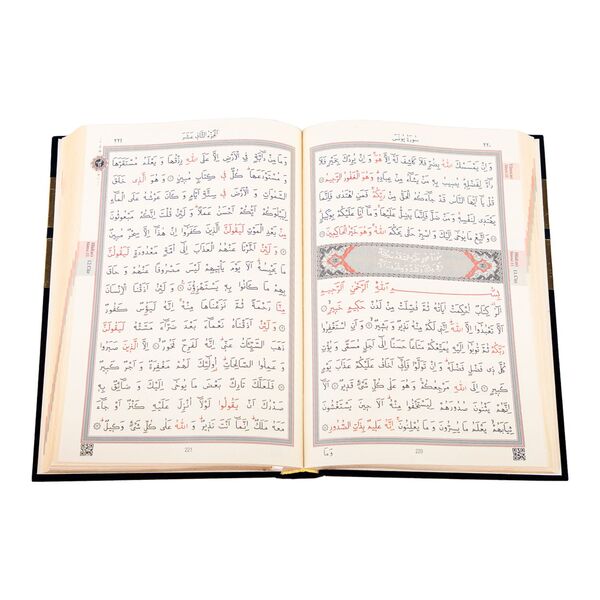 سُورَةُ يُونُسَ
٢٢٠
وَاِنْ يَمْسَسْكَ اللّٰهُ بِضُرٍّ فَلَا كَاشِفَ لَهُٓ اِلَّا هُوَ وَاِنْ يُرِدْكَ بِخَيْرٍ فَلَا
رَٓادَّ لِفَضْلِهٖ يُصٖيبُ بِهٖ مَنْ يَشَٓاءُ مِنْ عِبَادِهٖ وَهُوَ الْغَفُورُ الرَّحٖيمُ
قُلْ يَٓا اَيُّهَا النَّاسُ قَدْ جَٓاءَكُمُ الْحَقُّ مِنْ رَبِّكُمْ فَمَنِ اهْتَدٰى فَاِنَّمَا
يَهْتَدٖى لِنَفْسِهٖ وَمَنْ ضَلَّ فَاِنَّمَا يَضِلُّ عَلَيْهَا وَمَٓا اَنَا۬ عَلَيْكُمْ بِوَكٖيلٍ
وَاتَّبِعْ مَا يُوحٰٓى اِلَيْكَ وَاصْبِرْ حَتّٰى يَحْكُمَ اللّٰهُ وَهُوَ خَيْرُ الْحَاكِمٖينَ
بِسْمِ اللّٰهِ الرَّحْمٰنِ الرَّحٖيمِ
الٓرٰ كِتَابٌ اُحْكِمَتْ اٰيَاتُهُ ثُمَّ فُصِّلَتْ مِنْ لَدُنْ حَكٖيمٍ خَبٖيرٍ
اَلَّا تَعْبُدُٓوا اِلَّا اللّٰهَ اِنَّنٖى لَكُمْ مِنْهُ نَذٖيرٌ وَبَشٖيرٌ وَاَنِ اسْتَغْفِرُوا
رَبَّكُمْ ثُمَّ تُوبُٓوا اِلَيْهِ يُمَتِّعْكُمْ مَتَاعًا حَسَنًا اِلٰٓى اَجَلٍ مُسَمًّى وَيُؤْتِ
كُلَّ ذٖى فَضْلٍ فَضْلَهُ وَاِنْ تَوَلَّوْا فَاِنّٖٓى اَخَافُ عَلَيْكُمْ عَذَابَ يَوْمٍ
كَبٖيرٍ اِلَى اللّٰهِ مَرْجِعُكُمْ وَهُوَ عَلٰى كُلِّ شَیْءٍ قَدٖيرٌ اَلَٓا
اِنَّهُمْ يَثْنُونَ صُدُورَهُمْ لِيَسْتَخْفُوا مِنْهُ اَلَا حٖينَ يَسْتَغْشُونَ
ثِيَابَهُمْ يَعْلَمُ مَا يُسِرُّونَ وَمَا يُعْلِنُونَ اِنَّهُ عَلٖيمٌ بِذَاتِ الصُّدُورِ
وَمَا
220
12.Cüz
اَلْجُزْءُ الثَّانٖى عَشَرَ
٢٢١
وَمَا مِنْ دَٓابَّةٍ فِى الْاَرْضِ اِلَّا عَلَى اللّٰهِ رِزْقُهَا وَيَعْلَمُ مُسْتَقَرَّهَا
وَمُسْتَوْدَعَهَا كُلٌّ فٖى كِتَابٍ مُبٖينٍ وَهُوَ الَّذٖى خَلَقَ
السَّمٰوَاتِ وَالْاَرْضَ فٖى سِتَّةِ اَيَّامٍ وَكَانَ عَرْشُهُ عَلَى الْمَٓاءِ
لِيَبْلُوَكُمْ اَيُّكُمْ اَحْسَنُ عَمَلًا وَلَئِنْ قُلْتَ اِنَّكُمْ مَبْعُوثُونَ
مِنْ بَعْدِ الْمَوْتِ لَيَقُولَنَّ الَّذٖينَ كَفَرُٓوا اِنْ هٰذَٓا اِلَّا سِحْرٌ مُبٖينٌ
وَلَئِنْ اَخَّرْنَا عَنْهُمُ الْعَذَابَ اِلٰٓى اُمَّةٍ مَعْدُودَةٍ لَيَقُولُنَّ
مَا يَحْبِسُهُ اَلَا يَوْمَ يَاْتٖيهِمْ لَيْسَ مَصْرُوفًا عَنْهُمْ وَحَاقَ
بِهِمْ مَا كَانُوا بِهٖ يَسْتَهْزِؤُنَ وَلَئِنْ اَذَقْنَا الْاِنْسَانَ
مِنَّا رَحْمَةً ثُمَّ نَزَعْنَاهَا مِنْهُ اِنَّهُ لَيَؤُسٌ كَفُورٌ
وَلَئِنْ اَذَقْنَاهُ نَعْمَٓاءَ بَعْدَ ضَرَّٓاءَ مَسَّتْهُ لَيَقُولَنَّ
ذَهَبَ السَّيِّـَٔاتُ عَنّٖى اِنَّهُ لَفَرِحٌ فَخُورٌ اِلَّا الَّذٖينَ صَبَرُوا
وَعَمِلُوا الصَّالِحَاتِ اُو۬لٰٓئِكَ لَهُمْ مَغْفِرَةٌ وَاَجْرٌ كَبٖيرٌ
فَلَعَلَّكَ تَارِكٌ بَعْضَ مَا يُوحٰٓى اِلَيْكَ وَضَٓائِقٌ بِهٖ
صَدْرُكَ اَنْ يَقُولُوا لَوْلَٓا اُنْزِلَ عَلَيْهِ كَنْزٌ اَوْ جَٓاءَ
مَعَهُ مَلَكٌ اِنَّمَٓا اَنْتَ نَذٖيرٌ وَاللّٰهُ عَلٰى كُلِّ شَیْءٍ وَكٖيلٌ
221
12.Cüz